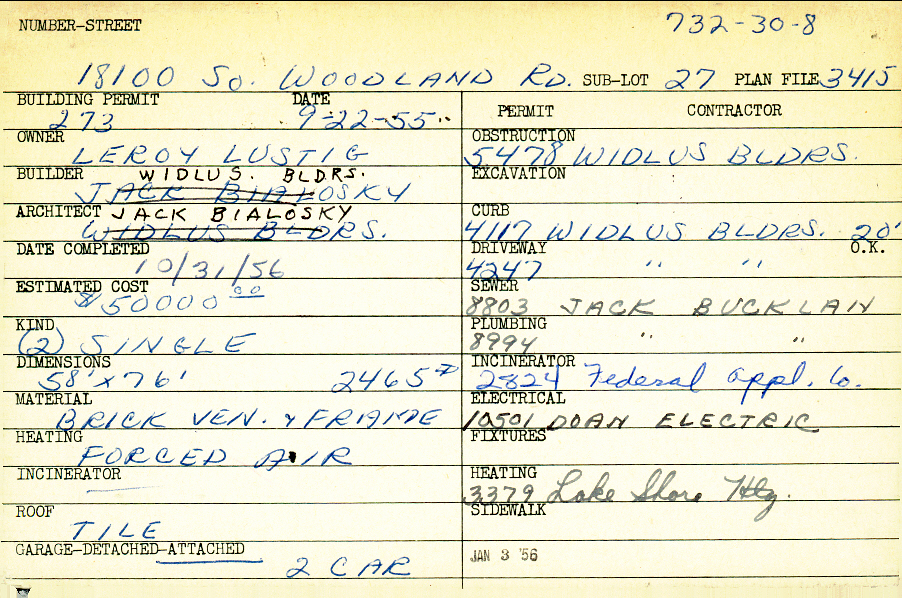 NUMBER-STREET 732-30-8
18100 So. WOODLAND RD. SUB-LOT 27 PLAN FILE 3415
BUILDING PERMIT DATE
273 9-22-55
OWNER
LEROY LUSTIG
BUILDER WIDLUS. BLDRS.
JACK BIALOSKY
ARCHITECT JACK BIALOSKY
WIDLUS BLDRS.
DATE COMPLETED
10/31/56
ESTIMATED COST
$50000 00
KIND
(2) SINGLE
DIMENSIONS
58' x 76' 2465
MATERIAL
BRICK VEN. & FRAME
HEATING
FORCED AIR
INCINERATOR
ROOF
TILE
GARAGE-DETACHED-ATTACHED
2 CAR
PERMIT CONTRACTOR
OBSTRUCTION
5478 WIDLUS BLDRS.
EXCAVATION
CURB
4117 WIDLUS BLDRS. 20'
DRIVEWAY O.K.
4247 " "
SEWER
8803 JACK BUCKLAN
PLUMBING
8994 " "
INCINERATOR
2824 Federal Appl. Co.
ELECTRICAL
10501 DOAN ELECTRIC
FIXTURES
HEATING
3379 Lake Shore Htg.
SIDEWALK
JAN 3 '56